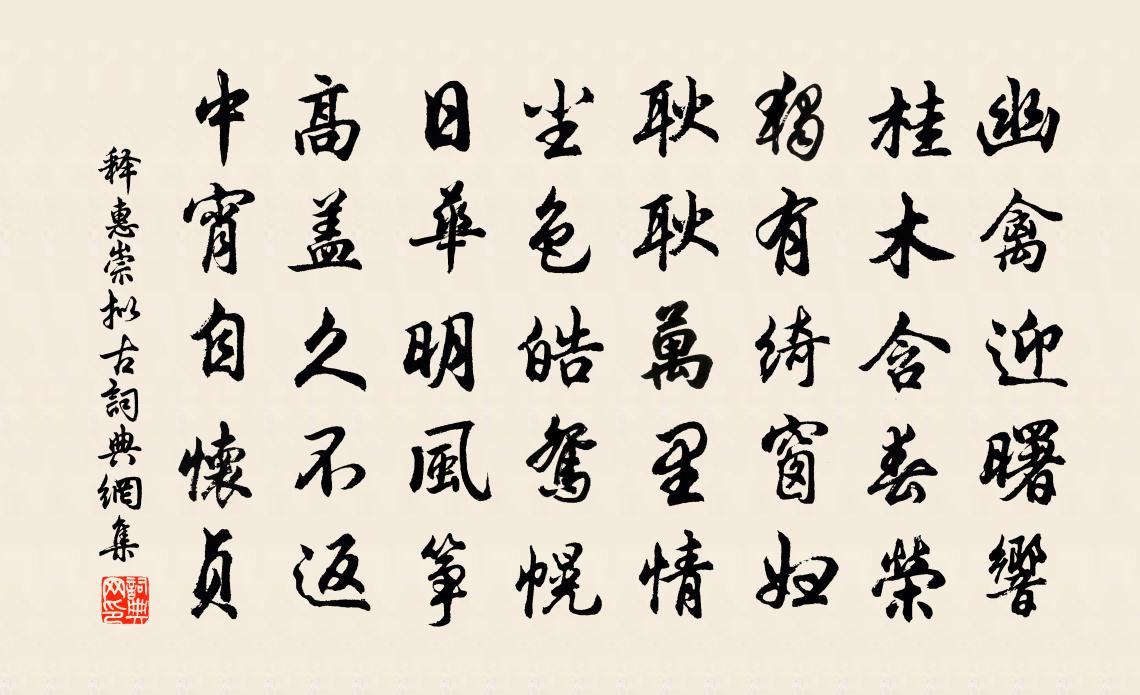 幽禽迎曙響
桂木含春榮
獨有綺窗婦
耿耿萬里情
尘色皓鴛幌
日華明風筝
高盖久不返
中宵自懷貞
释惠崇拟古詞典網集
詞典网印